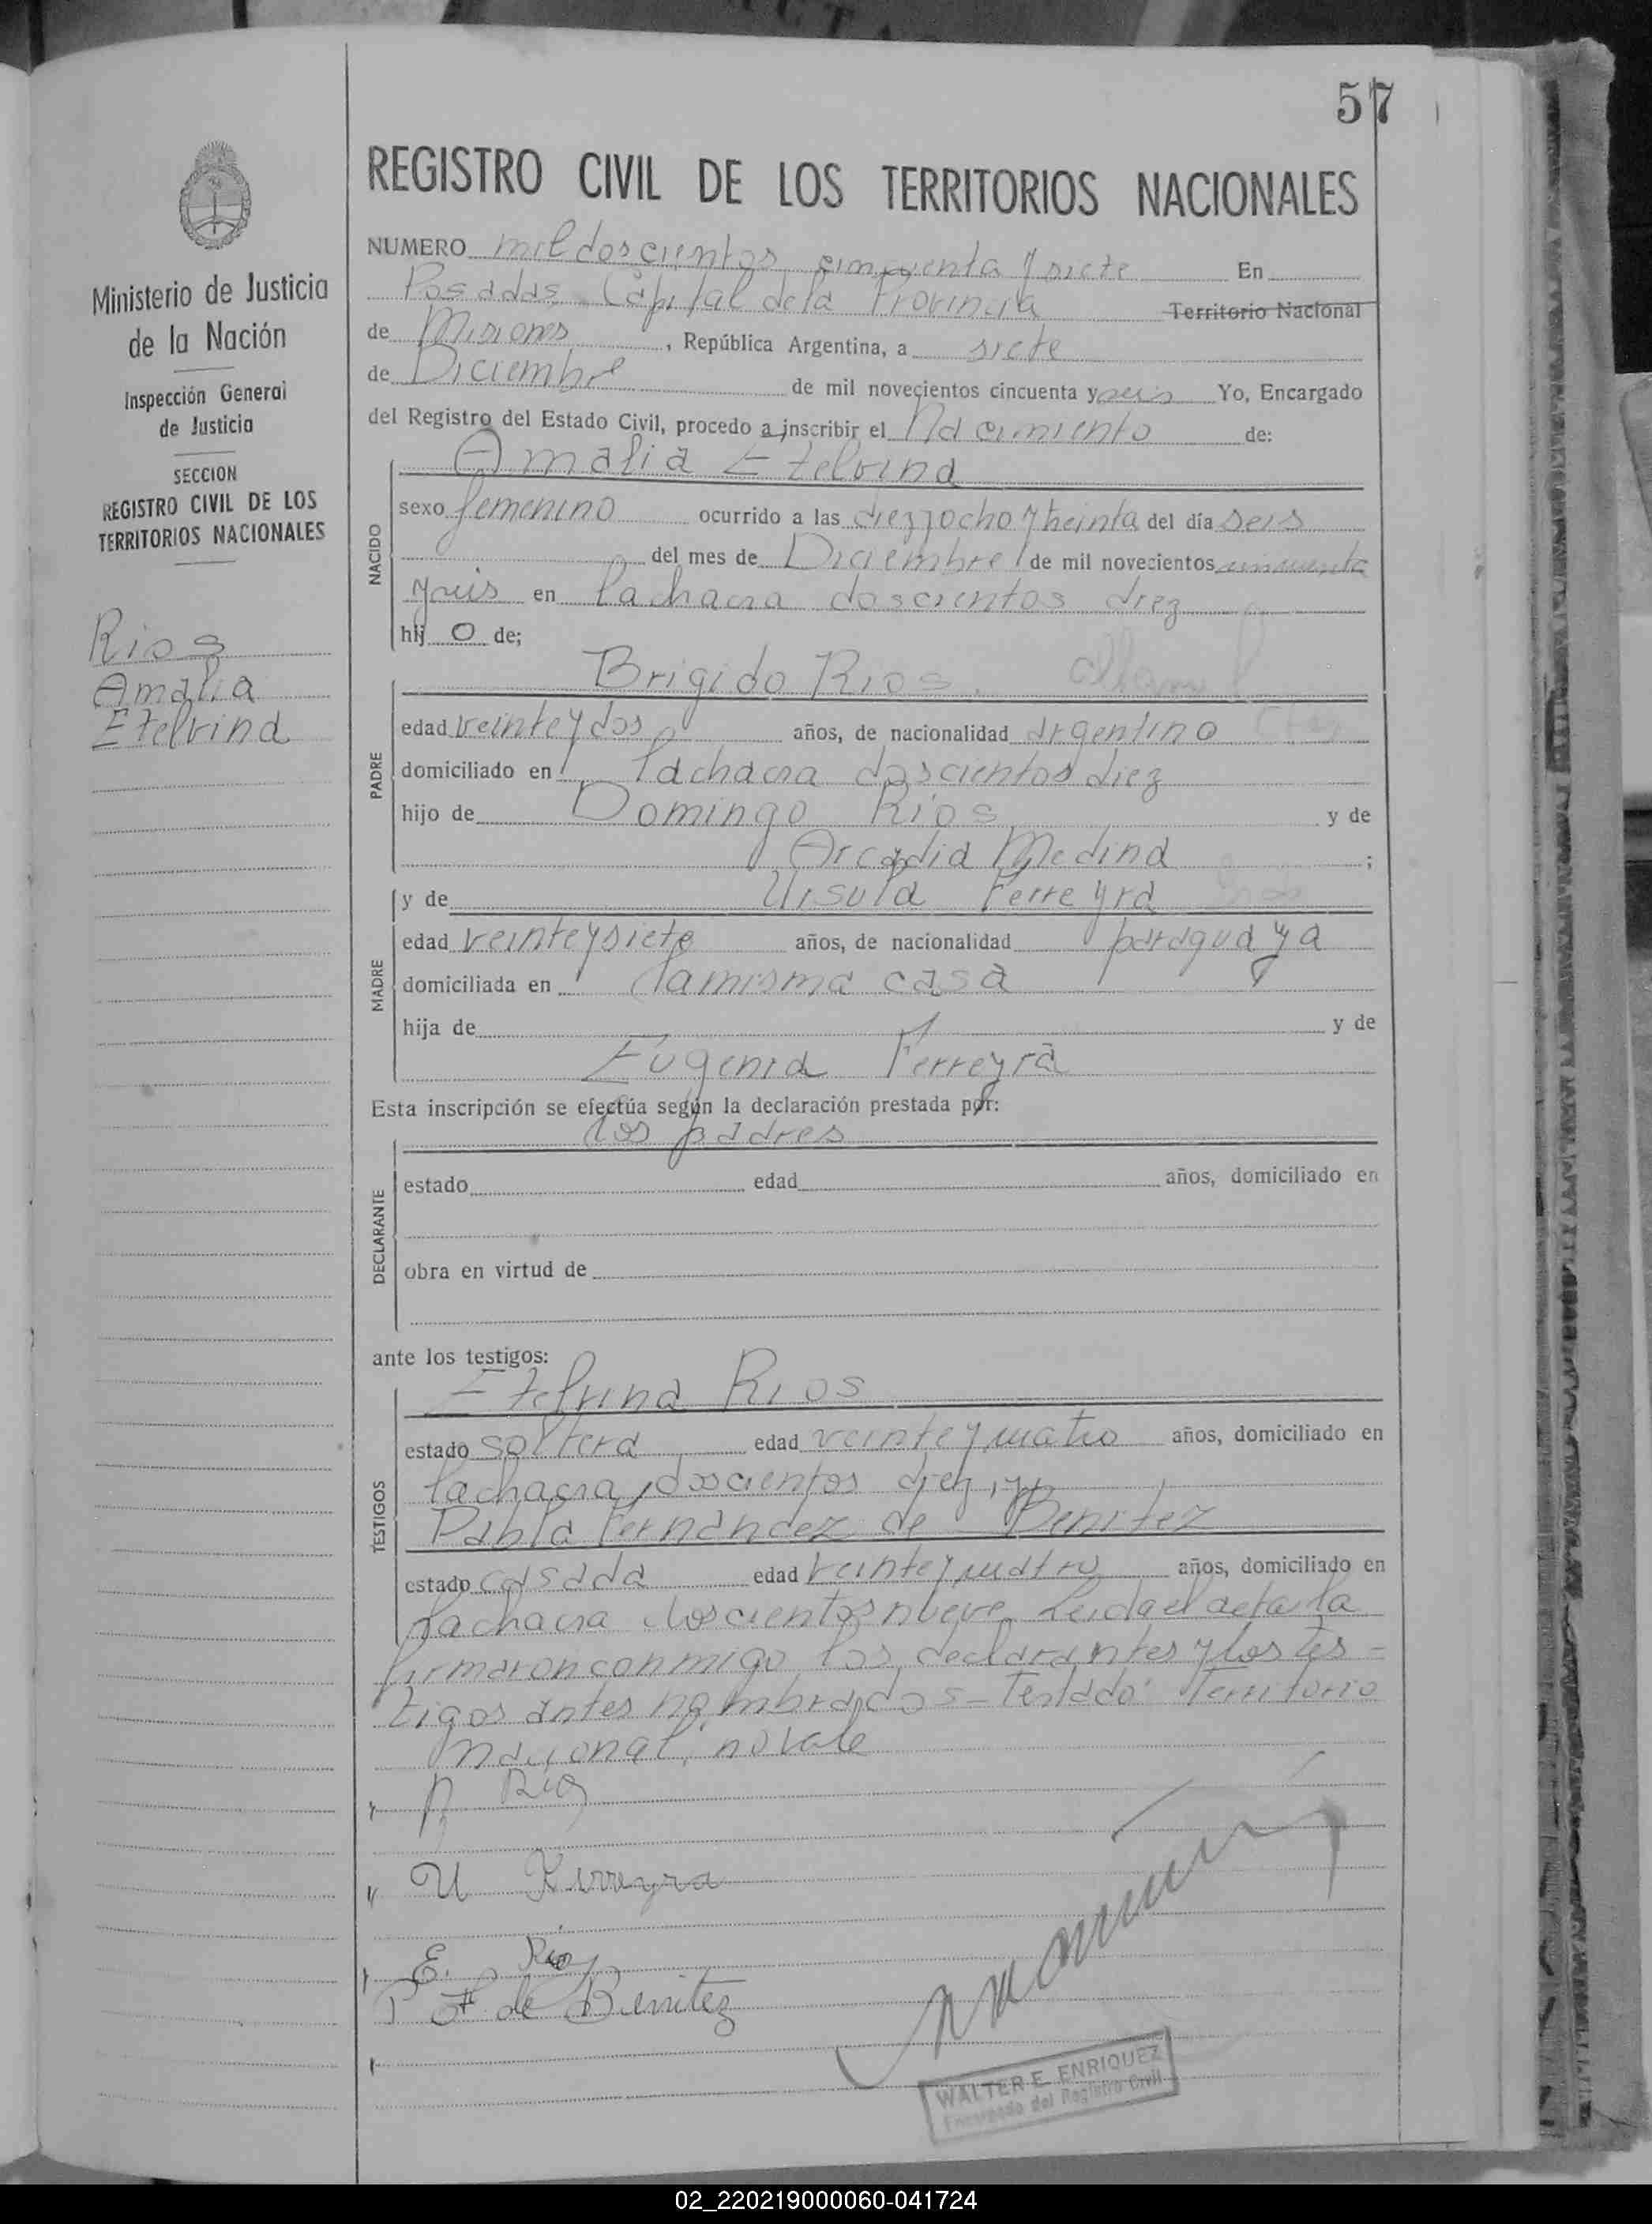 57
REGISTRO CIVIL DE LOS TERRITORIOS NACIONALES
Ministerio de Justicia
de la Nación
Inspección General
de Justicia
SECCION
REGISTRO CIVIL DE LOS
TERRITORIOS NACIONALES
Rios
Amalia
Etelvina
NUMERO mil doscientos cincuenta y siete En
Posadas Capital de la Provincia Territorio Nacional
de Misiones, República Argentina, a siete
de Diciembre de mil novecientos cincuenta y seis Yo, Encargado
del Registro del Estado Civil, procedo a inscribir el Nacimiento de:
NACIDO
Amalia Etelvina
sexo femenino ocurrido a las diez y ocho y treinta del día seis
del mes de Diciembre de mil novecientos cincuenta
y seis en la chacra doscientos diez
hij o de;
PADRE
Brigido Rios.
edad veinte y dos años, de nacionalidad argentino
domiciliado en la chacra doscientos diez
hijo de Domingo Rios y de
Arcadia Medina ;
MADRE
y de Ursula Ferreyra
edad veinte y siete años, de nacionalidad paraguaya
domiciliada en la misma casa
hija de y de
Eugenia Ferreyra
Esta inscripción se efectúa según la declaración prestada por:
DECLARANTE
los padres
estado edad años, domiciliado en
obra en virtud de
ante los testigos:
TESTIGOS
Etelvina Rios
estado soltera edad veinte y cuatro años, domiciliado en
la chacra doscientos diez, y
Pabla Fernandez de Benitez
estado casada edad veinte y cuatro años, domiciliado en
la chacra doscientos nueve. Leida el acta la
firmaron conmigo los declarantes y los tes=
tigos antes nombrados - Testado: Territorio
nacional, no vale
Rios
U Ferreyra
E. Rios
P F de Benitez
WALTER E. ENRIQUEZ
Encargado del Registro Civil
02_220219000060-041724